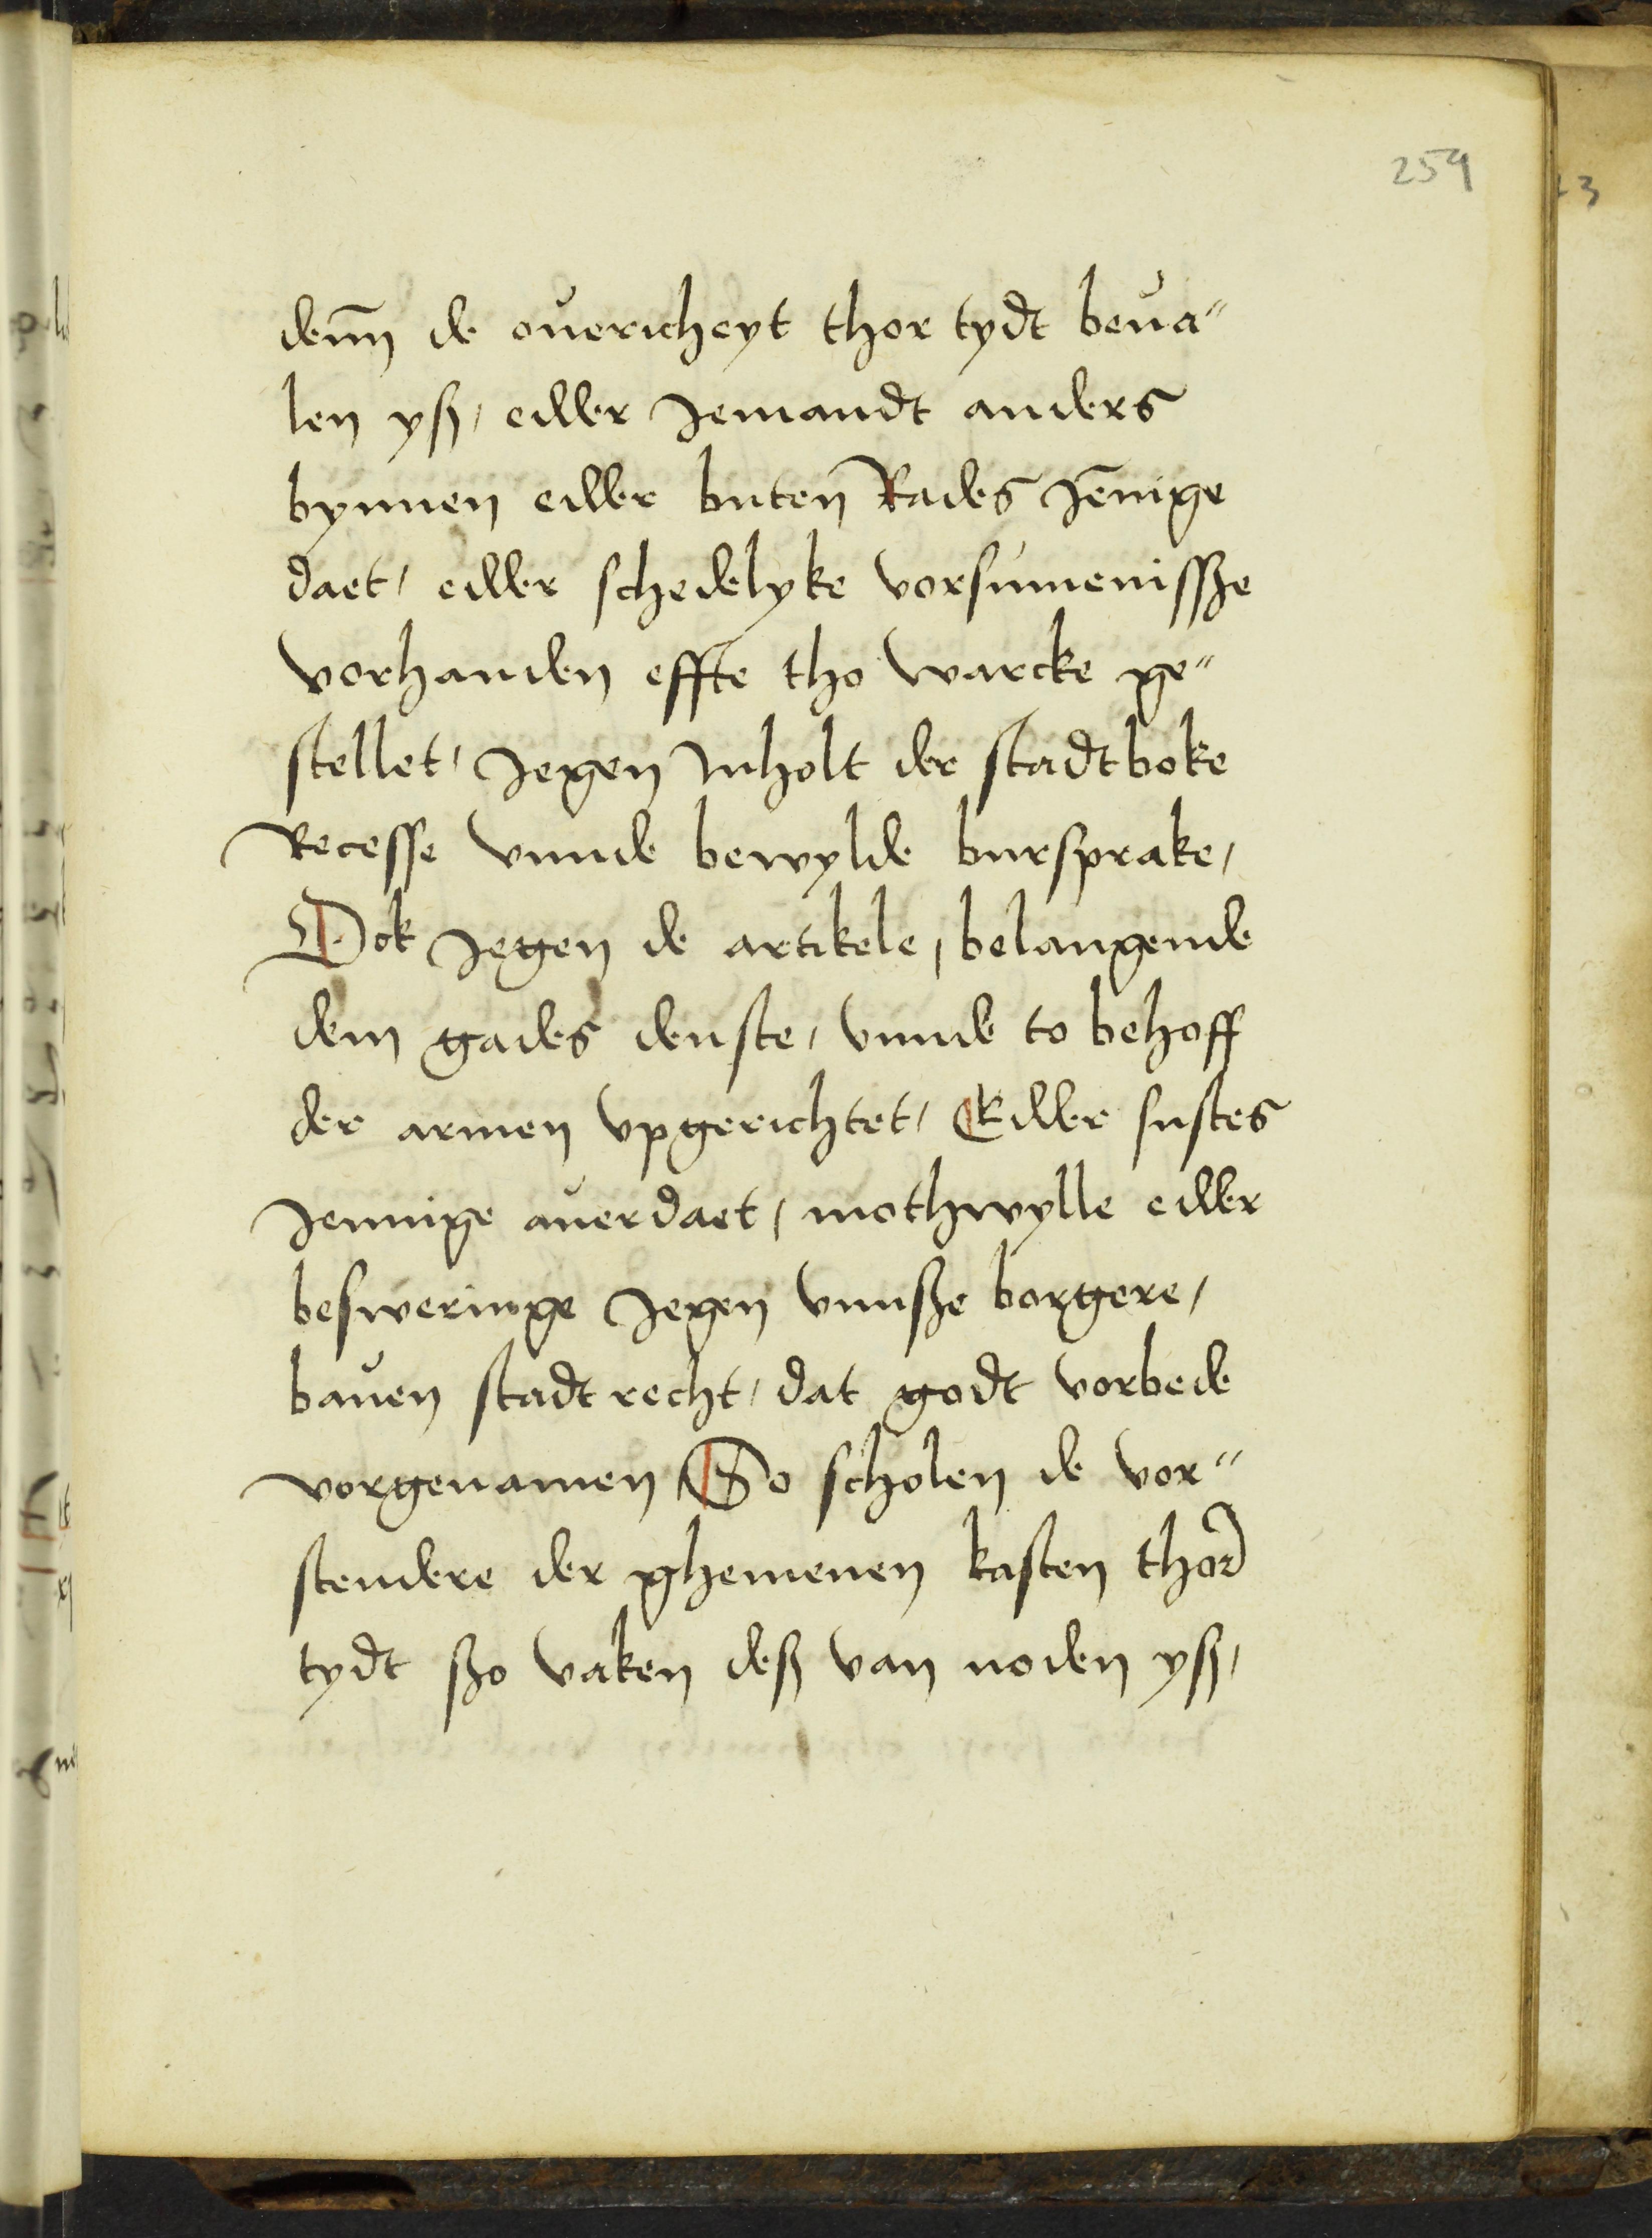 259
denn de ouericheyt thor tydt beua"
len yß, edder Jemandt anders
bynnen edder buten Rades Jenige
daet, edder schedelyke vorsumenissze
vorhanden effte tho warcke ge"
stellet, Jegen Inholt der stadtboke
Recesse vnnde bewylde bursprake,
Ock Jegen de artikele, belangende
dem gades denste, vnnde to behoff
der armen vpgerichtet, Edder sustes
Jennige auerdaet, mothwylle edder
besweringe Jegen vnnsze borgere,
bauen stadt recht, dat godt vorbede
vorgenamen So scholen de vor"
stendere der ghemenen kasten thor
tydt szo vaken deß van noden yß,